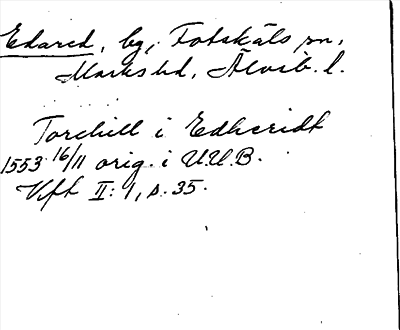 Edared, by, Fotskäls sn,
Marks hd, Älvsb. l.
Torchill i Edhcridt
1553 16/11 orig. i U.U.B.
Vft II: 1, s. 35.